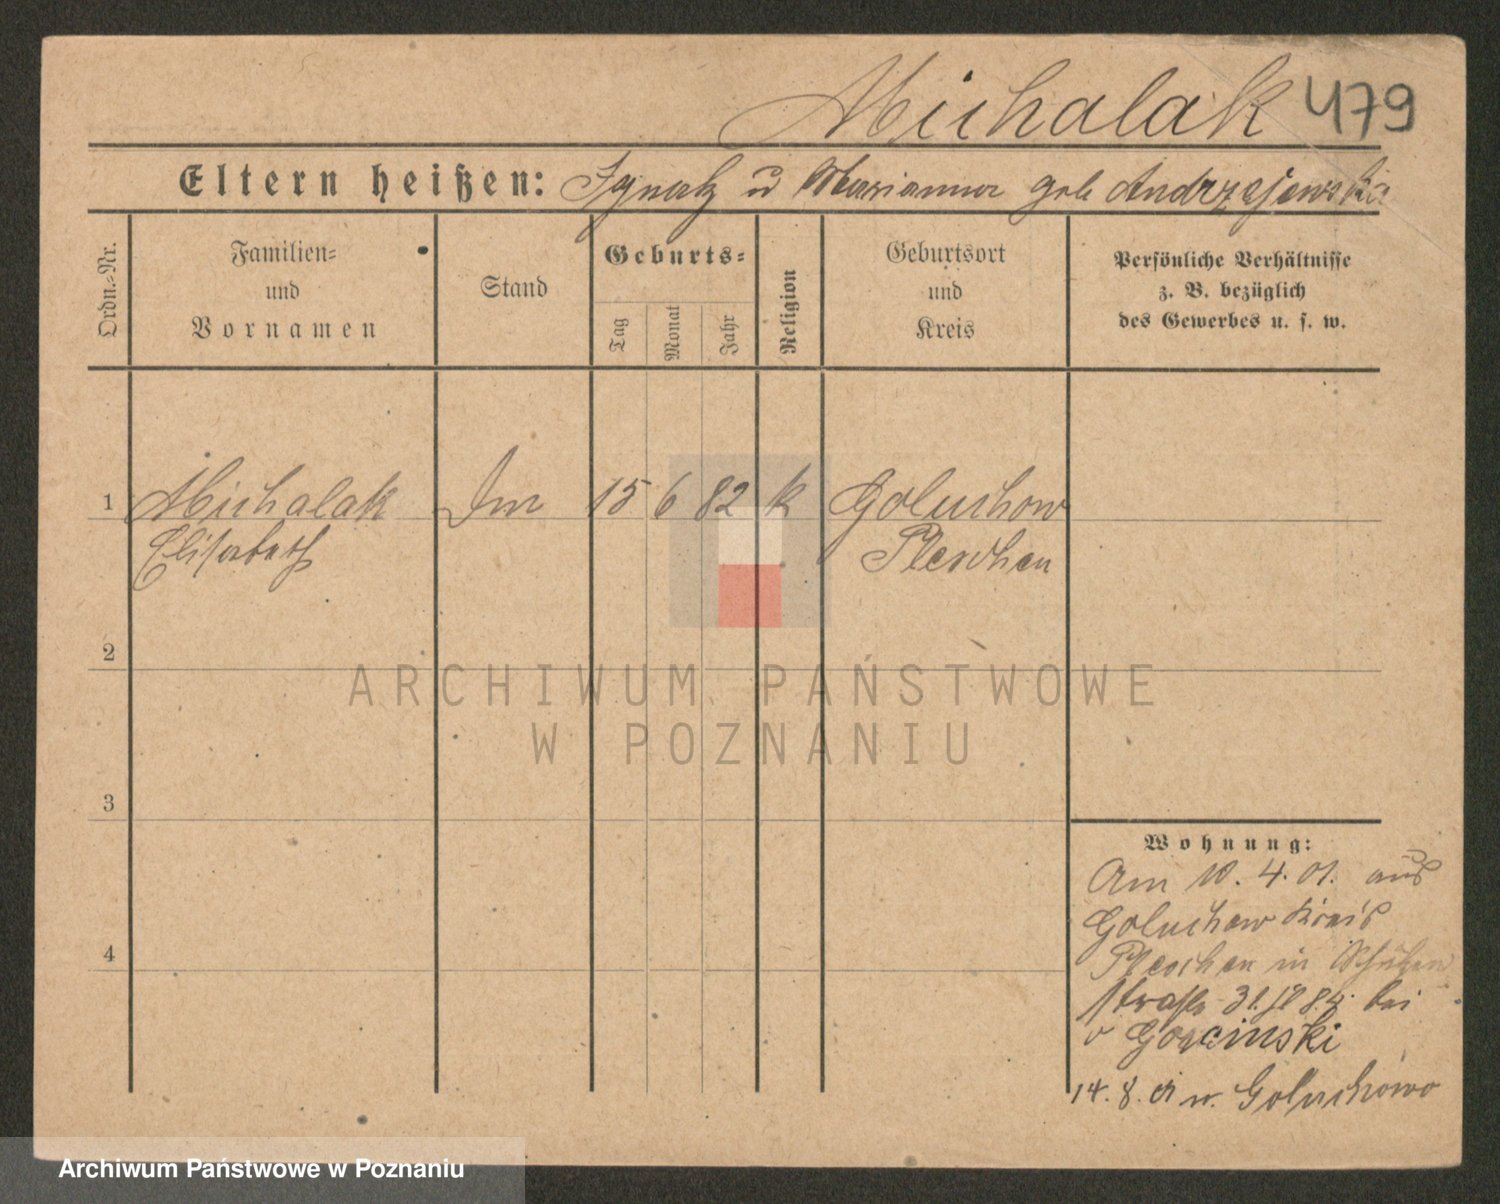 Michalak 479
Eltern heißen: Ignatz u Marianna geb Andrzejewska
Ordn.-Nr.
Familien-
und
Vornamen
Stand
Geburts-
Tag
Monat
Jahr
Religion
Geburtsort
und
Kreis
Persönliche Verhältnisse
z. B. bezüglich
des Gewerbes u. s. w.
1 Michalak 15 6 82 k Goluchow
Elisabeth Pleschen
2
3
4
Wohnung:
Am 10. 4. 01. aus
Goluchow Kreis
Pleschen in Schützen
straße 31. bei
v Gorcinski
14. 8. n. Goluchowo
ARCHIWUM PAŃSTWOWE
W POZNANIU
Archiwum Państwowe w Poznaniu